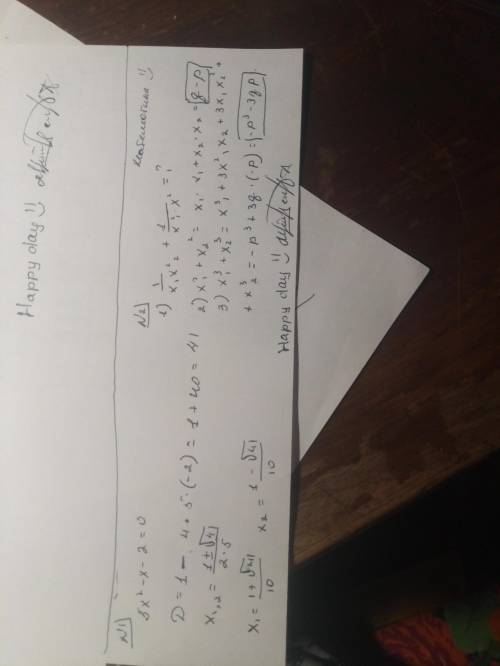 Happy day
N1
5x² - x - 2 = 0
D = 1 - 4 · 5 · (-2) = 1 + 40 = 41
x₁,₂ = (1 ± √41) / (2 · 5)
x₁ = (1 + √41) / 10 x₂ = (1 - √41) / 10
N2
1) 1 / (x₁x₂²) + 1 / (x₁²·x₂) = ?
2) x₁² + x₂² = x₁ · x₁ + x₂ · x₂ = q - p
3) x₁³ + x₂³ = x₁³ + 3x₁²x₂ + 3x₁x₂ +
+ x₂³ = -p³ + 3q · (-p) = -p³ - 3qp.
Happy day